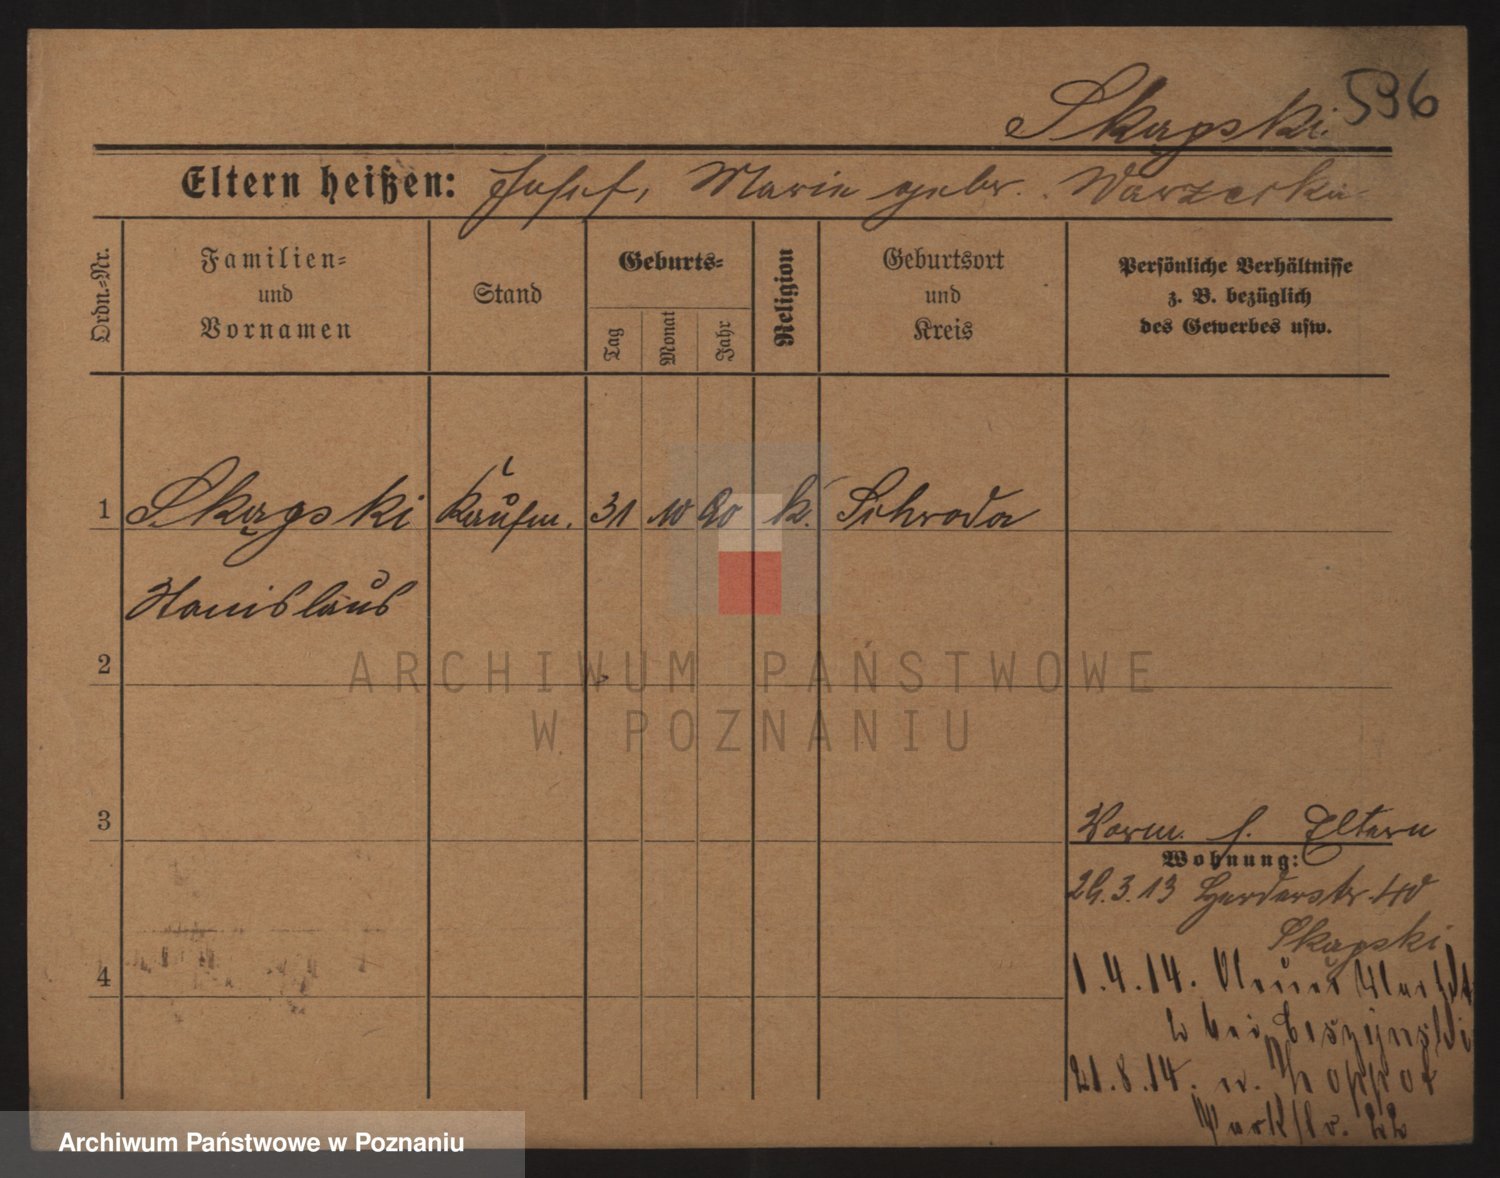 Skąpski 596
Eltern heißen: Josef, Marie gebr. Warzerka
Ordn.-Nr.
Familien-
und
Vornamen
Stand
Geburts-
Tag
Monat
Jahr
Religion
Geburtsort
und
Kreis
Persönliche Verhältnisse
z. B. bezüglich
des Gewerbes usw.
1 Skąpski Kaufm. 31 10 90 k. Schroda
Stanislaus
2
3
Vorm. s. Eltern
Wohnung:
Herderstr.
Skąpski
4
1.4.14. Neuer Markt
2 bei
21.8.14. n. Zoppot
Parkstr. 22
ARCHIWUM PAŃSTWOWE
W POZNANIU
Archiwum Państwowe w Poznaniu